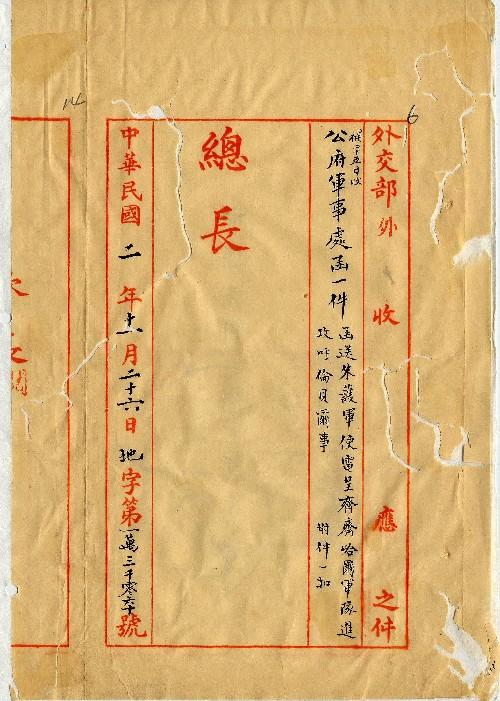 6
外交部外 收 應 之件
公府軍事處函一件
函送朱護軍使電呈齊齊哈爾軍隊進
攻呼倫貝爾事 附件一扣
總長
中華民國二年十一月二十六日地字第一萬三千零六十號
14